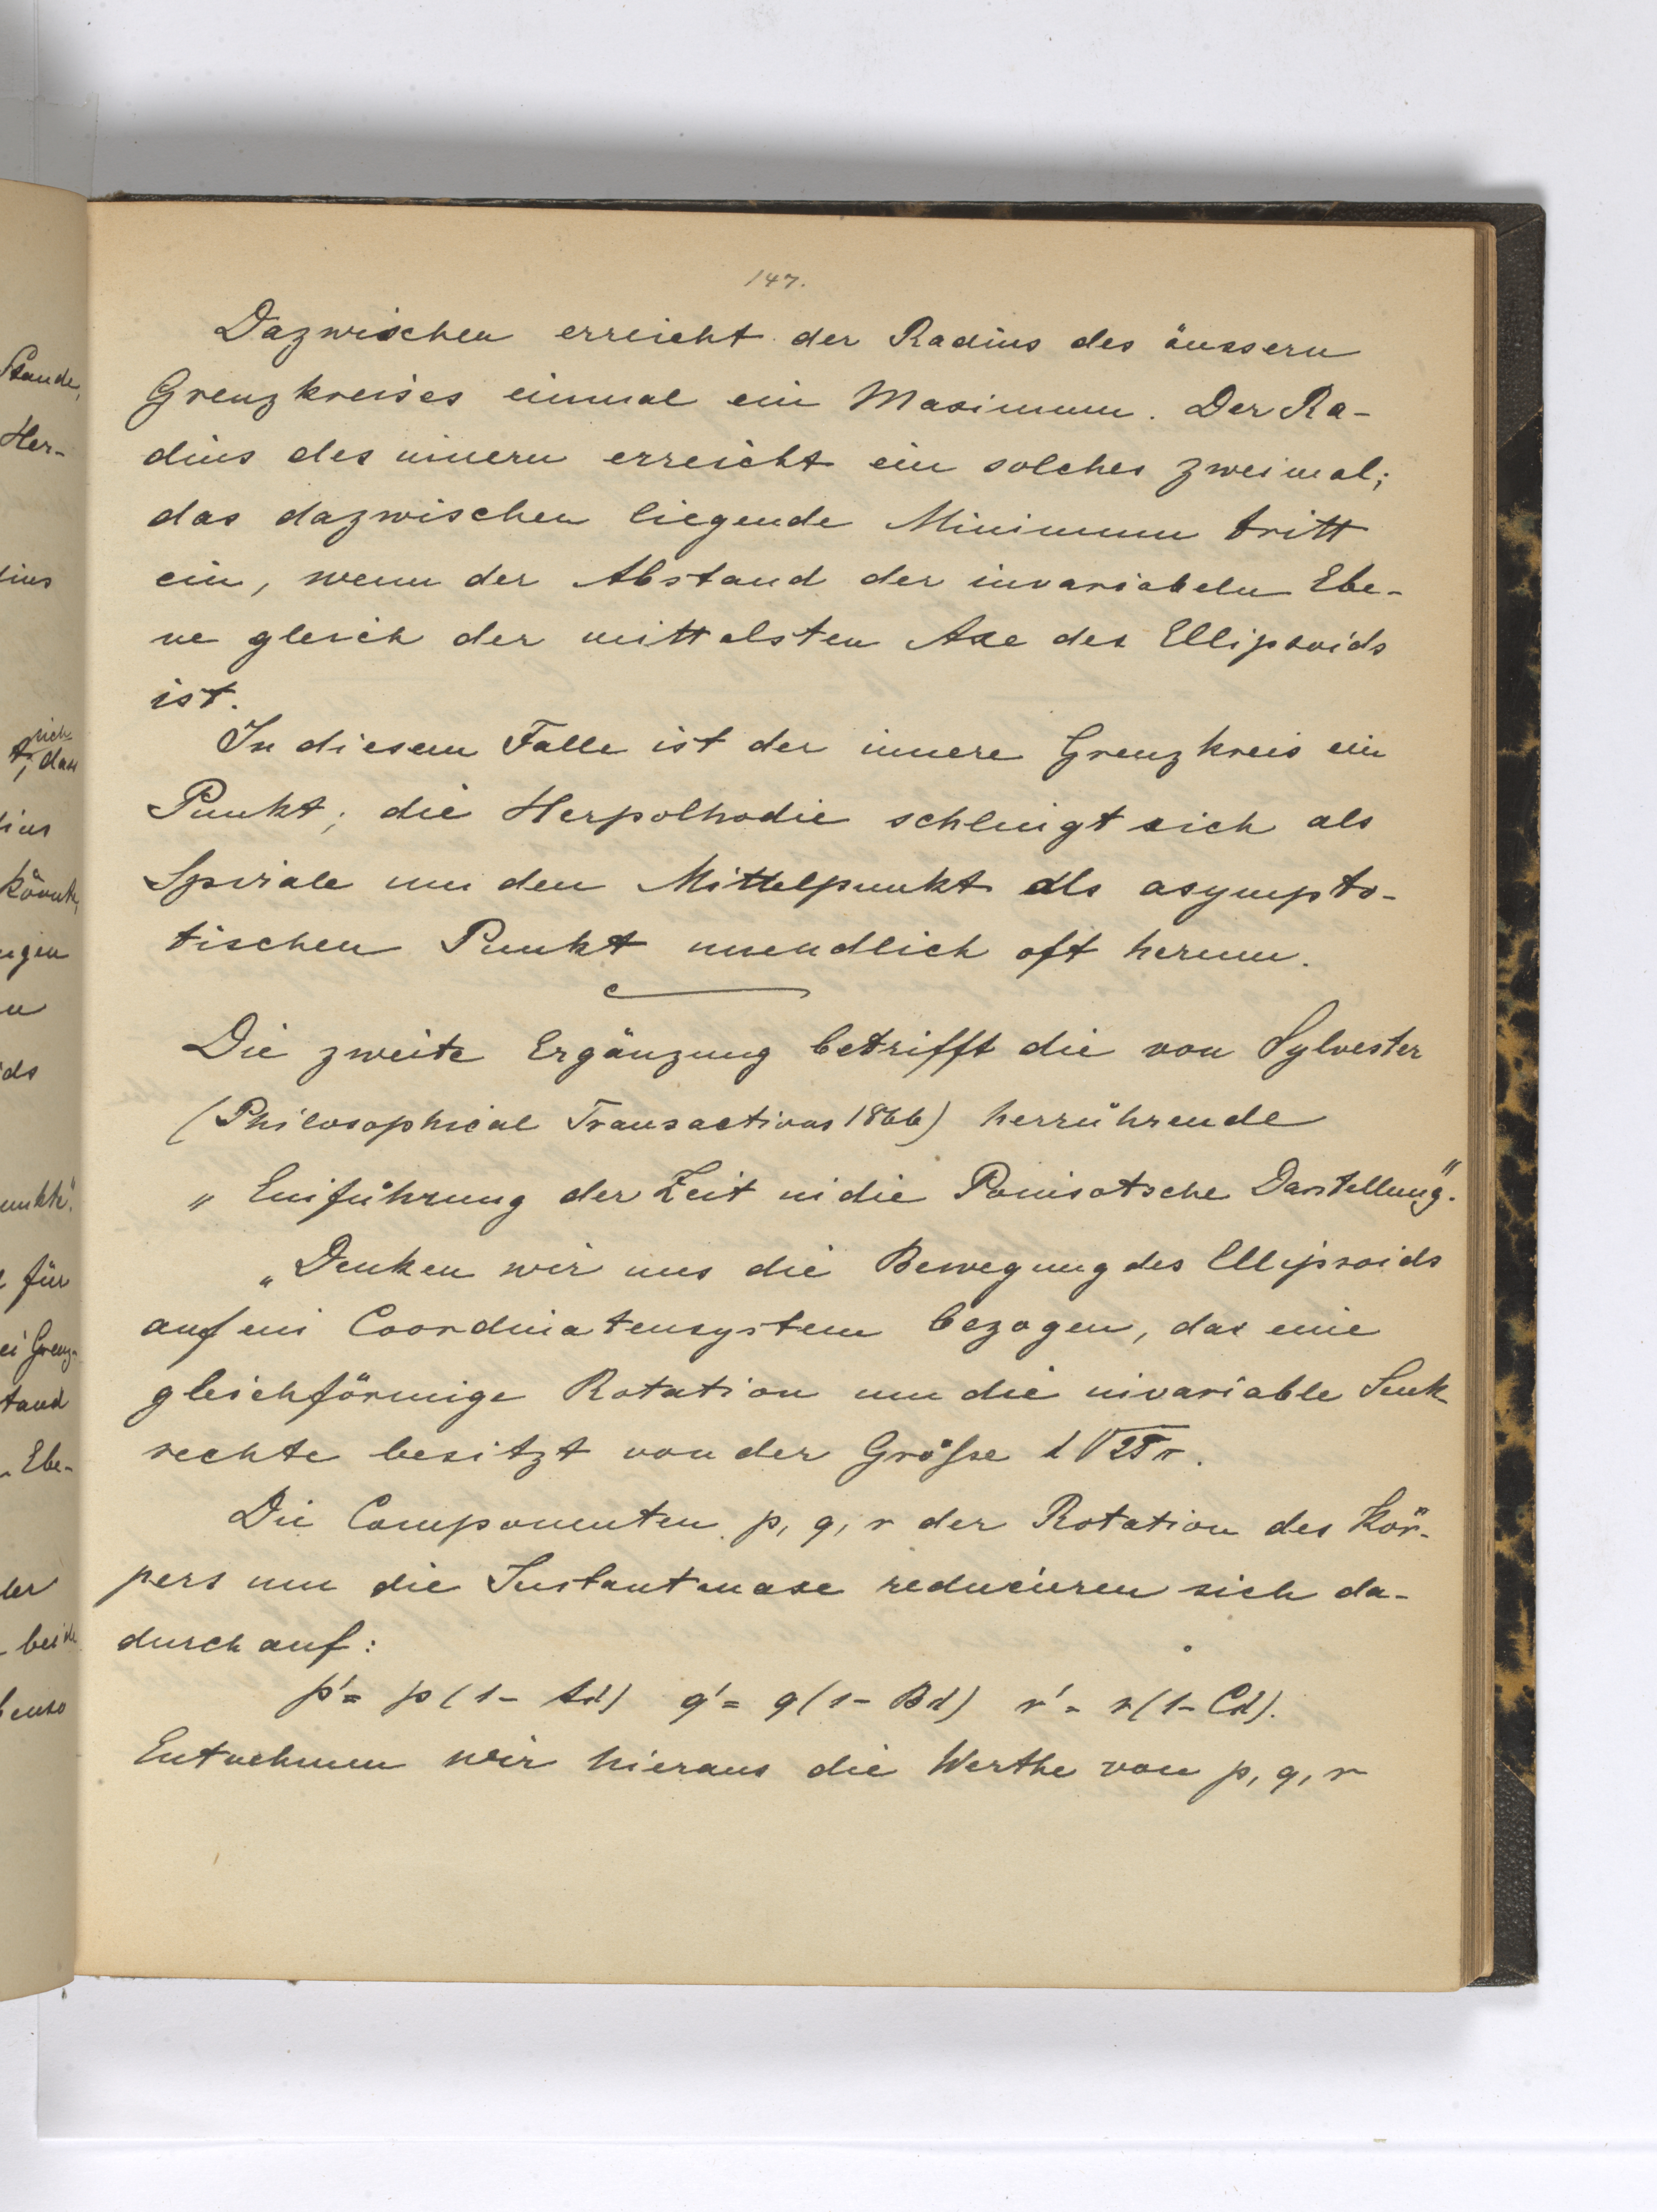 147.
Dazwischen erreicht der Radius des äussern
Grenzkreises einmal ein Maximum. Der Ra-
dius des innern erreicht ein solches zweimal;
das dazwischen liegende Minimum tritt
ein, wenn der Abstand der invariabeln Ebe-
ne gleich der mittelsten Axe des Ellipsoids
ist.
In diesem Falle ist der innere Grenzkreis ein
Punkt; die Herpolhodie schlingt sich als
Spirale um den Mittelpunkt als asympto-
tischen Punkt unendlich oft herum.
Die zweite Ergänzung betrifft die von Sylvester
(Philosophical Transactions 1866) herrührende
„Einführung der Zeit in die Poinsotsche Darstellung".
„Denken wir uns die Bewegung des Ellipsoids
auf ein Coordinatensystem bezogen, das eine
gleichförmige Rotation um die invariable Senk-
rechte besitzt von der Grösse
Die Componenten p, q, r der Rotation des Kör-
pers um die Instantanaxe reducieren sich da-
durch auf:
p' = p(1 - Ad) q' = q(1 - Bd) r' = r(1 - Cd).
Entnehmen wir hieraus die Werthe von p, q, r
Stande,
Her-
sich
t, dass
könnte,
ngen
n
ids
für
ei Grenz-
tand
Ebe-
der
beide
benso